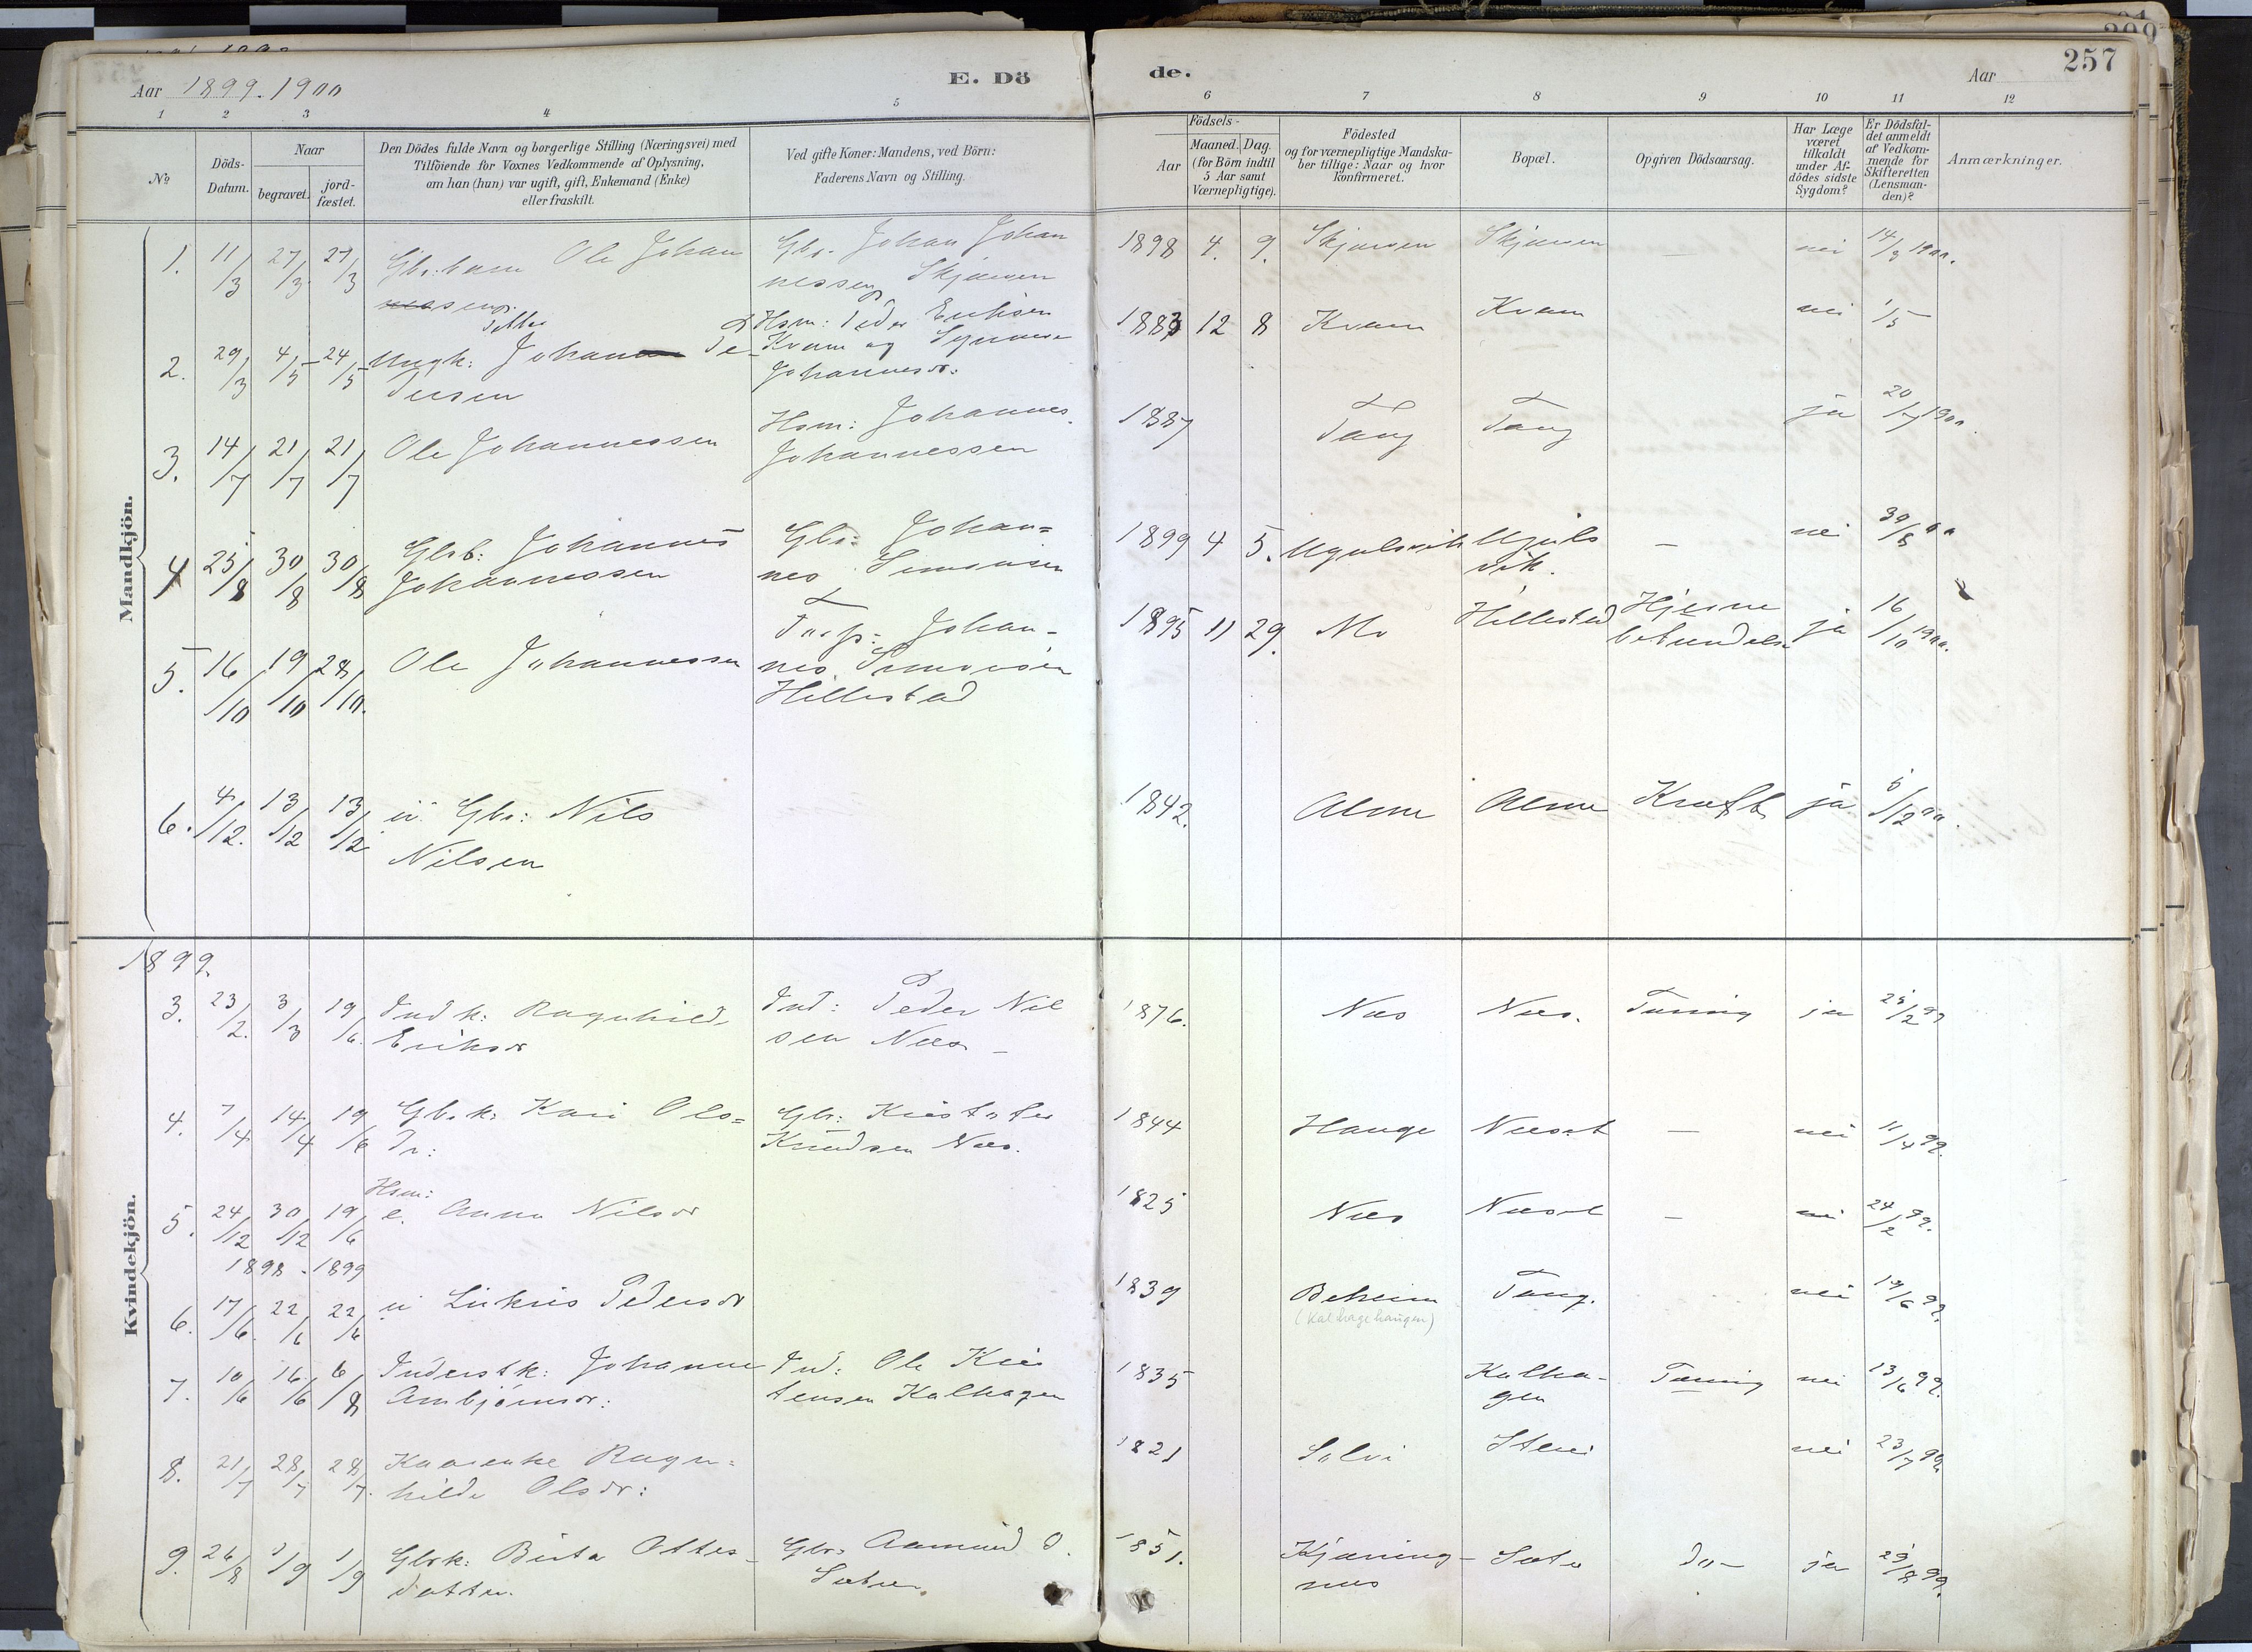 257
Aar 1899. 1900
E. Dö
de.
Aar
1 2 3 4 5 6 7 8 9 10 11 12
No
Döds-Datum.
Naar
begravet.
jord-fæstet.
Den Dödes fulde Navn og borgerlige Stilling (Næringsvei) med
Tilföiende for Voxnes Vedkommende af Oplysning,
om han (hun) var ugift, gift, Enkemand (Enke)
eller fraskilt.
Ved gifte Koner: Mandens, ved Börn:
Faderens Navn og Stilling.
Födsels-
Aar
Maaned. Dag.
(for Börn indtil
5 Aar samt
Værnepligtige).
Födested
og for værnepligtige Mandska-
ber tillige: Naar og hvor
konfirmeret.
Bopæl.
Opgiven Dödsaarsag.
Har Læge
været
tilkaldt
under Af-
dödes sidste
Sygdom?
Er Dödsfal-
det anmeldt
af Vedkom-
mende for
Skifteretten
(Lensman-
den)?
Anmærkninger.
Mandkjön.
1. 11/3 27/3 27/3 Gbr. barn Ole Johan Gbr. Johan Johan 1898 4. 9. Skjerven Skjerven — nei 14/3 1900.
nessen Skjerven
2. 29/3 4/5 24/5 Ungk: Johan Pe- Hsm: Peder Eriksen 1883 12 8 Kvam Kvam nei 1/5
dersen Kvam og Synneve
Johannesdr:
3. 14/7 21/7 21/7 Ole Johannessen Hsm: Johannes 1887 Tang Tang ja 20/7 1900.
Johannessen
4 25/8 30/8 30/8 Gbrb: Johannes Gbr: Johan= 1899 4 5. Ugulsvik Uguls — nei 30/8 00
Johannessen nes Simonsen vik.
5. 16/10 19/10 28/10. Ole Johannessen Johan- 1895 11 29. Mo Hillestad Hjerne ja 16/10 1900.
nes Simonsen betendelse
Hillestad
6. 4/12. 13/12 13/12 ū Gbr: Nils 1842. Alme Alme Kræft ja 5/12 00.
Nilsen
Kvindekjön.
1899.
3. 23/2. 3/3 19/6. Ind k: Ragnhild Ind: Peder Nil 1876. Næs Næs. Tæring ja 25/2 99
Eriksdr sen Næs —
4. 7/4 14/4 19/6 Gbr. k: Kari Ols= Gbr: Kristofer 1844 Hauge Næset — nei 11/4 99.
dr: Knudsen Næs.
Hsm:
5. 24/12 30/12 19/6 e. Anna Nilsdr 1825 Næs Næset — nei 24/2 99.
1898. 1899
6. 17/6. 22/6 22/6 ū Lukris Pedersdr 1839 Beheim Tang. nei 19/6 99.
(Kalhagehaugen)
7. 10/6 16/6 6/8 Inderstk: Johanne Ind: Ole Kris 1835 Kalha- Tæring nei 13/6 99.
Ambjörnsdr: tensen Kalhagen gen
8. 21/7 28/7 28/7. Kaarenke Ragn= 1821 Solvi nei 23/7 99.
hilde Olsdr:
9. 26/8 1/9 1/9 Gbrk: Birta Ottes- Gbr: Aamund O. 1851. Kjæring- Sæte do- ja 29/8 99.
datter. Sæter. næs